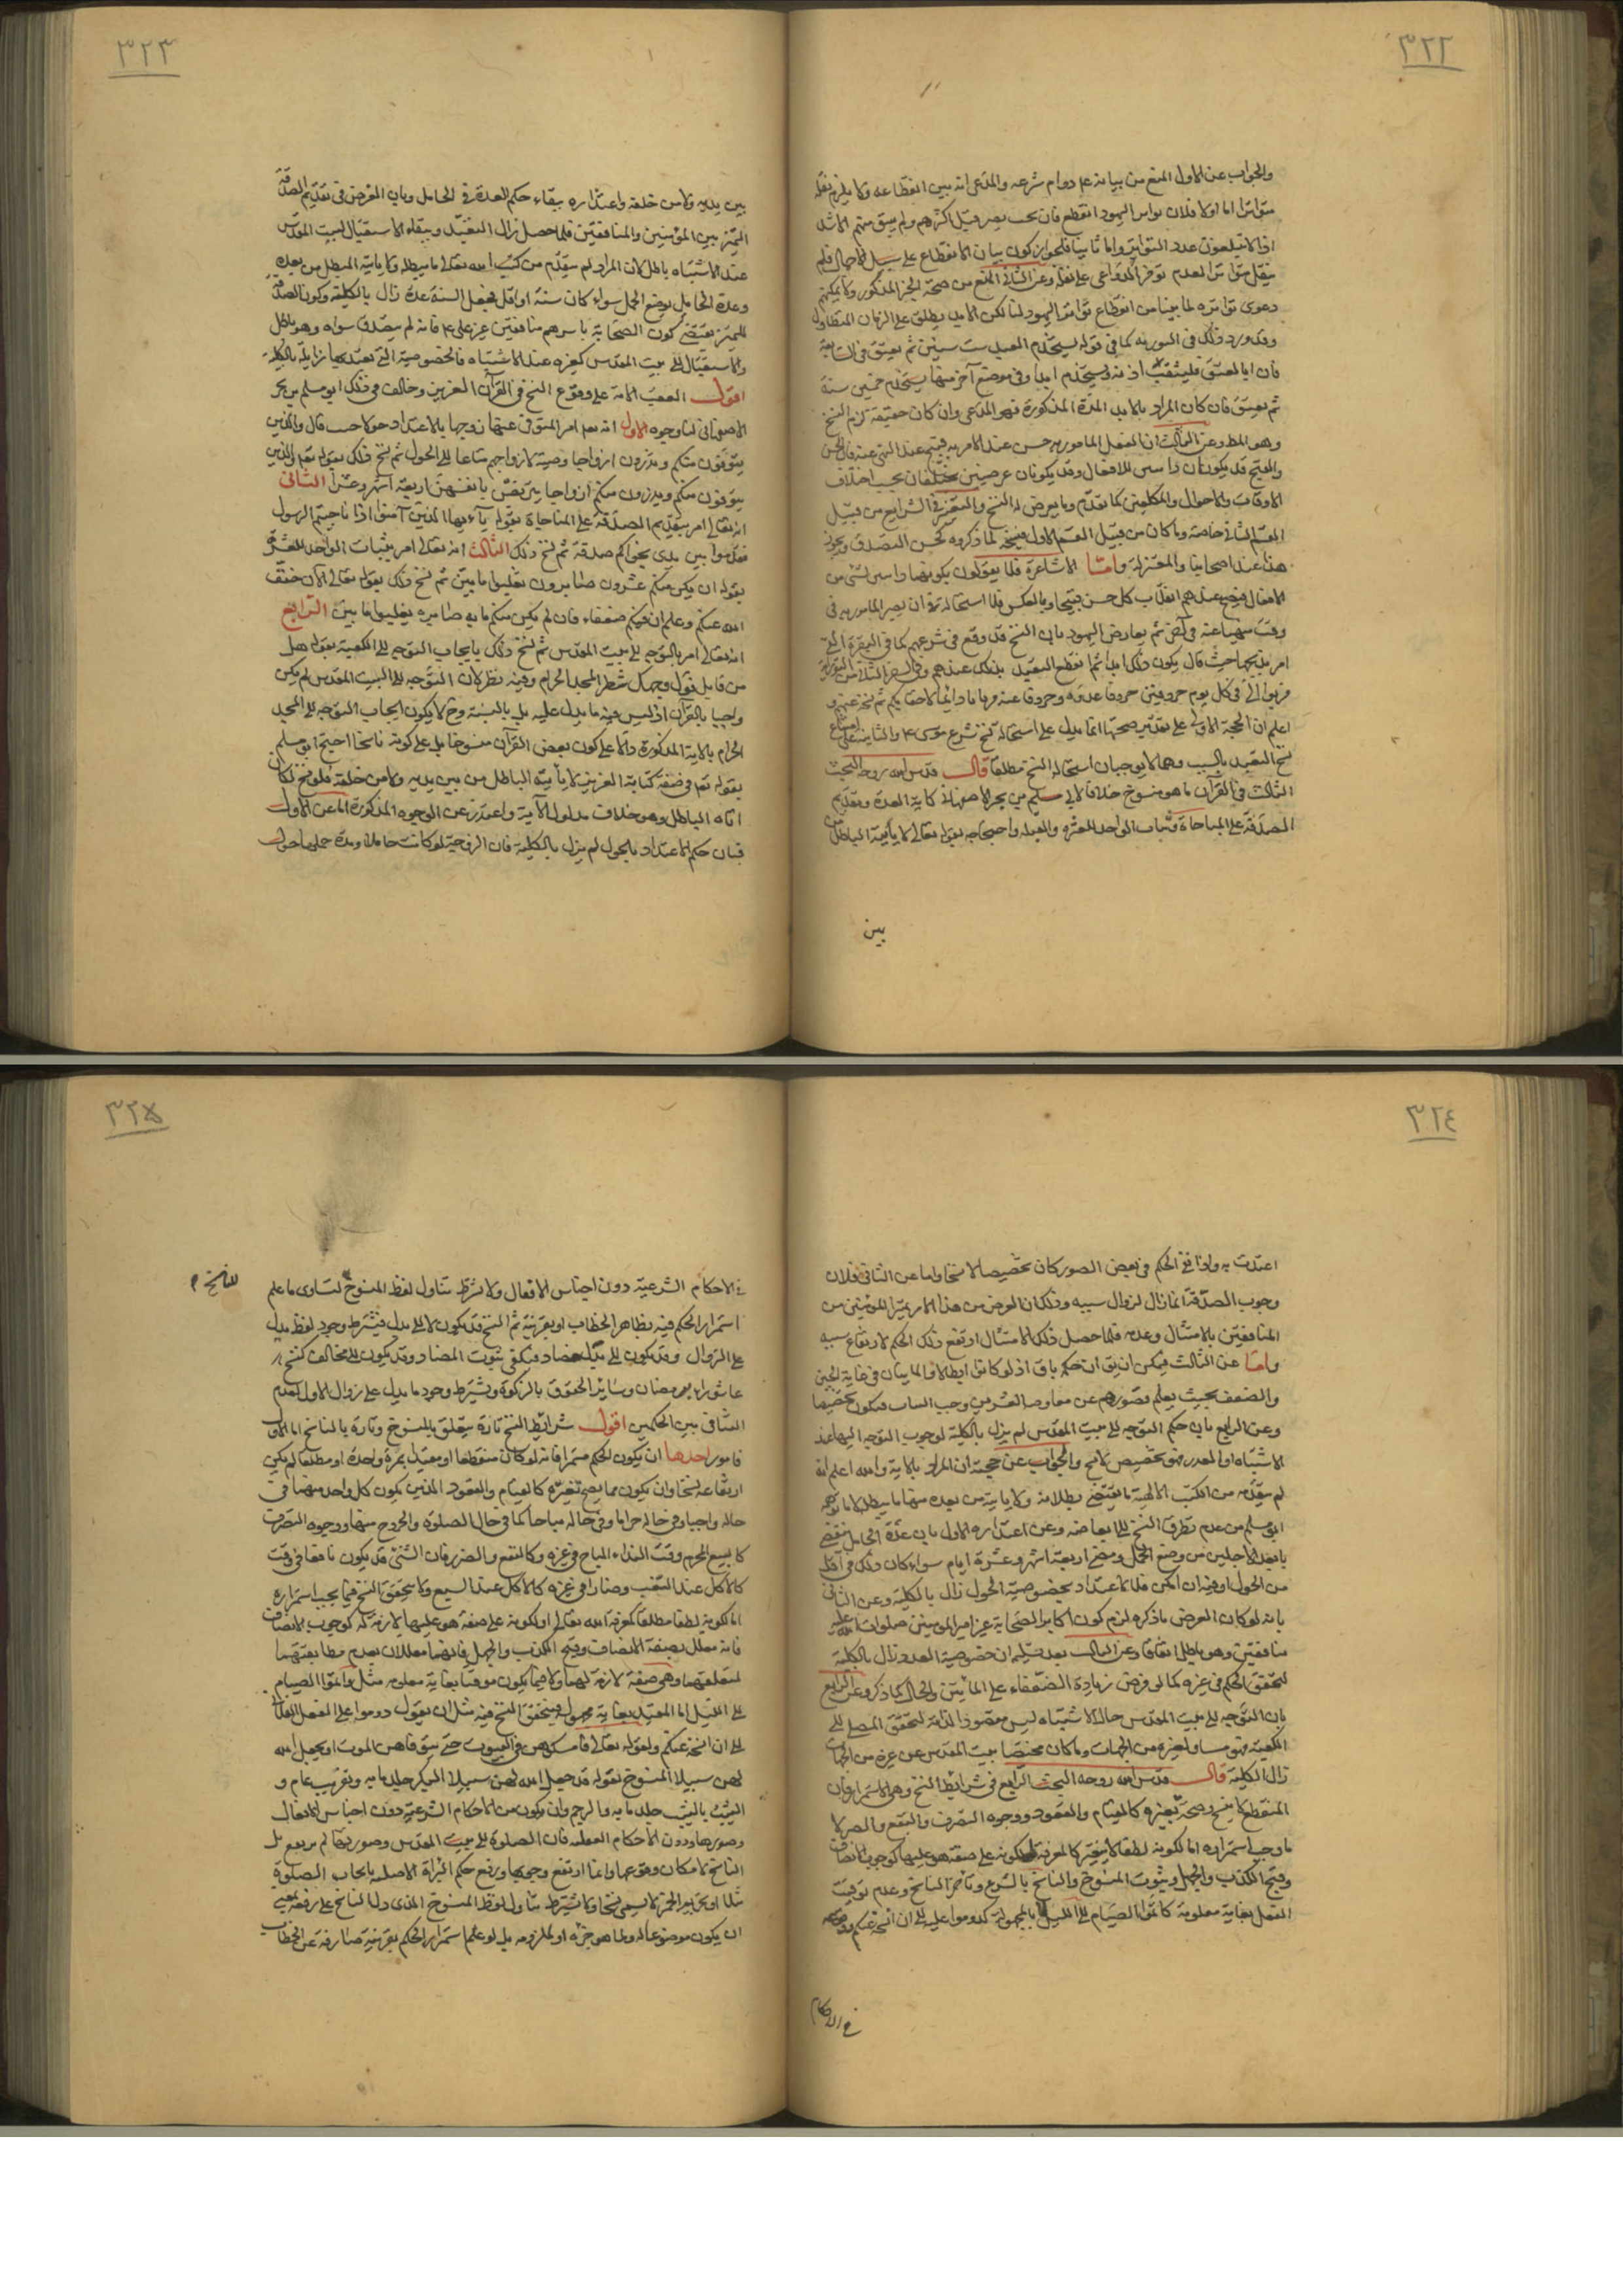 ٣٢٢
والجواب عن الاول المنع من بيانه عم دوام شرعه والمدعى انه بين انقطاعه ولا يلزم نقله
متواترا اما اولا فلان تواتر اليهود انقطع فان بخت نصر قتل اكثرهم ولم يبق منهم الا شذ
اذا لا يبلغون عدد التواتر واما ثانيا فلجواز كون بيان الانقطاع على سبيل الاجمال فلم
ينقل متواترا لعدم توفر الدواعى على نقله وعن الثانى المنع من صحة الخبر المذكور ولا يمكنهم
دعوى تواتره لما بينا من انقطاع تواتر اليهود لنا لكن الابد يطلق على الزمان المتطاول
وقد ورد ذلك فى التورية كما فى قوله يستخدم العبد ست سنين ثم يعتق فى السابعة
فان ابا العتق فليثقب اذنه ويستخدم ابدا وفى موضع آخر منها يستخدم خمسين سنة
ثم يعتق فان كان المراد بالابد المدة المذكورة فهو المدعى وان كان حقيقة لزم النسخ
وهو المط وعن الثالث ان الفعل المامور به حسن عند الامر به قبيح عند النهى عنه فان الحسن
والقبح قد يكونان ذاتيين للافعال وقد يكونان عرضيين يختلفان بحسب اختلاف
الاوقات والاحوال والمكلفين كما تقدم وما يعرض له النسخ والتغير فى الشرايع من قبيل
القسم الثانى خاصة وما كان من قبيل القسم الاول فيخ لما ذكروه كحسن الصدق وغيره
هذا عند اصحابنا والمعتزلة واما الاشاعرة فلا يقولون بكونهما ذاتيين لشئ من
الافعال فيصح عندهم انقلاب كل حسن قبيحا وبالعكس فلا استحالة فى ان يصير المامور به فى
وقت منهيا عنه فى آخر ثم يعارض اليهود بان النسخ قد وقع فى شرعهم كما فى البقرة التى
امر بذبحها حيث قال يكون ذلك ابدا ثم انقطع التعبد بذلك عندهم وفى السفر الثانى من التورية
قربوا الى فى كل يوم خروفين خروفا غدوة وخروفا عشية قربانا دائما لاحقابكم ثم نسخ عنهم و
اعلم ان الحجة الاولى على تقدير صحتها انما يدل على استحالة نسخ شرع موسى ع والثانية على امتناع
نسخ التعبد بالسبت وهما لا يوجبان استحالة النسخ مطلقا قال قدس الله روحه البحث
الثالث فى القرآن ما هو منسوخ خلافا لابى مسلم بن بحر الاصفهانى كاية العدة وتقديم
الصدقة على المناجاة وثبات الواحد للعشرة والقبلة واحتجاجه بقوله تعالى لا يأتيه الباطل من
بين
٣٢٣
بين يديه ولا من خلفه واعتذاره ببقاء حكم العدة فى الحامل وبان الغرض فى تقديم الصدقة
التميز بين المؤمنين والمنافقين فلما حصل زال التعبد وببقاء الاستقبال لبيت المقدس
عند الاشتباه باطل لان المراد لم يتقدم من كتب الله تعالى ما يبطله ولا ياتيه المبطل من بعده
وعدة الحامل بوضع الحمل سواء كان سنة او اقل فجعل السنة عدة زال بالكلية وكون الصدقة
للتميز يقتضى كون الصحابة باسرهم منافقين غير على ع فانه لم يتصدق سواه وهو باطل
والاستقبال الى بيت المقدس كغيره عند الاشتباه فالخصوصية التى تعبد بها زايلة بالكلية
اقول اتفقت الامة على وقوع النسخ فى القرآن العزيز وخالف فى ذلك ابو مسلم بن بحر
الاصفهانى لنا وجوه الاول انه تعالى امر المتوفى عنها زوجها بالاعتداد حولا حيث قال والذين
يتوفون منكم ويذرون ازواجا وصية لازواجهم متاعا الى الحول ثم نسخ ذلك بقوله تع والذين
يتوفون منكم ويذرون منكم ازواجا يتربصن بانفسهن اربعة اشهر وعشرا الثانى
انه تعالى امر بتقديم الصدقة على المناجاة بقوله يا ءيها الذين آمنوا اذا ناجيتم الرسول
فقدموا بين يدى نجواكم صدقة ثم نسخ ذلك الثالث انه تعالى امر بثبات الواحد للعشرة
بقوله ان يكن منكم عشرون صابرون يغلبوا مايتين ثم نسخ ذلك بقوله تعالى الآن خفف
الله عنكم وعلم ان فيكم ضعفاء فان لم يكن منكم ماية صابرة يغلبوا مايتين الرابع
انه تعالى امر بالتوجه الى بيت المقدس ثم نسخ ذلك بايجاب التوجه الى الكعبة بقوله هل
من قايل فول وجهك شطر المسجد الحرام وفيه نظر لان التوجه الى البيت المقدس لم يكن
واجبا بالقرآن اذ ليس فيه ما يدل عليه بل بالسنة وح لا يكون ايجاب التوجه الى المسجد
الحرام بالاية المذكورة دالا على كون بعض القرآن منسوخا بل على كونه ناسخا احتج ابو مسلم
بقوله تع فى صفة كتابه العزيز لا يأتيه الباطل من بين يديه ولا من خلفه فلو نسخ لكان
اتاه الباطل وهو خلاف مدلول الآية واعتذر عن الوجوه المذكورة اما عن الاول
فبان حكم الاعتداد بالحول لم يزل بالكلية فان الزوجة لو كانت حاملا ومدة حملها حول
٣٢٤
اعتدت به واذا بقى الحكم فى بعض الصور كان تخصيصا لا نسخا واما عن الثانى فلان
وجوب الصدقة انما زال لزوال سببه وذلك ان الغرض من هذا الامر تميز المؤمنين من
المنافقين بالامتثال وعدمه فلما حصل ذلك الامتثال ارتفع ذلك الحكم لارتفاع سببه
واما عن الثالث فيمكن ان يق ان حكمه باق اذ لو كانوا ابطالا والمايتان فى غاية الجبن
والضعف بحيث يعلم قصورهم عن مقاومة العشرين وجب الثبات فيكون تخصيصا
وعن الرابع بان حكم التوجه الى بيت المقدس لم يزل بالكلية لوجوب التوجه اليها عند
الاشتباه او العذر فهو تخصيص لا نسخ والجواب عن حجته ان المراد بالاية والله اعلم انه
لم يتقدمه من الكتب الالهية ما يقتضى بطلانه ولا ياتيه من بعده منها ما يبطله لا ما توهمه
ابو مسلم من عدم تطرق النسخ الى ابعاضه وعن اعتذاره الاول بان عدة الحامل تنقضى
بابعد الاجلين من وضع الحمل ومضى اربعة اشهر وعشرة ايام سواء كان ذلك فى اقل
من الحول او فيه ان امكن فالاعتداد بخصوصية الحول زال بالكلية وعن الثانى
بانه لو كان الغرض ما ذكره لزم كون اكابر الصحابة غير امير المومنين صلوات الله عليه
منافقين وهو باطل اتفاقا وعن الثالث بعد تسليمه ان خصوصية العدد زال بالكلية
لتحقق الحكم فى غيره كما لو فرض زيادة الضعفاء على المائتين والحال كما ذكر وعن الرابع
بان التوجه الى بيت المقدس حالة الاشتباه ليس مقصودا لذاته لتحقق المصلى الى
الكعبة فهو مساو لغيره من الجهات وما كان مختصا ببيت المقدس عن غيره من الجهات
زال بالكلية قال قدس الله روحه البحث الرابع فى شرايط النسخ وهى الاستمرار فان
المنقطع لا ينسخ وصحة تغيره كالقيام والعقود ووجوه التصرف والنفع والضرر لا
ما وجب استمراره اما لكونه لطفا لا يتغير كالمعرفة او لكونه على صفة هو عليها كوجوب الانصاف
وقبح الكذب والجهل وثبوت المنسوخ والناسخ بالشرع وتاخر الناسخ وعدم توقيت
الفعل بغاية معلومة كاتموا الصيام الى الليل لا بالمجهولة كدوموا عليه الى ان انسخه عنكم
فى الاحكام
٣٢٥
فى الاحكام الشرعية دون اجناس الافعال ولا شرط تناول لفظ المنسوخ لتساوى ما علم
للناسخ
استمرار الحكم فيه بظاهر الخطاب او بقرينة ثم النسخ قد يكون لا الى بدل فيشترط وجود لفظ يدل
على الزوال وقد يكون الى بدل مضاد فيكفى ثبوت المضاد وقد يكون الى مخالف كنسخ
عاشوراء برمضان وسائر الحقوق بالزكوة ويشترط وجود ما يدل على زوال الاول لعدم
التنافى بين الحكمين اقول شرائط النسخ تارة يتعلق بالمنسوخ وتارة بالناسخ اما الاول
فامور احدها ان يكون الحكم مستمرا فانه لو كان منقطعا او مقيدا بمرة واحدة او مطلقا لم يكن
ارتفاعه نسخا وان يكون مما يصح تغيره كالقيام والعقود الذين يكون كل واحد منهما فى
حالة واجبا وفى حالة حراما وفى حالة مباحا كما فى حال الصلوة والخروج منها ووجوه التصرف
كالبيع المحرم وقت النداء المباح فى غيره وكالنفع والضرر فان الشئ قد يكون نافعا فى وقت
كالاكل عند السغب وضارا فى غيره كالاكل عند الشبع ولا يتحقق النسخ فيما يجب استمراره
اما لكونه لطفا مطلقا كمعرفة الله تعالى او لكونه على صفة هو عليها لازمة له كوجوب الانصاف
فانه معلل بصفة الانصاف وقبح الكذب والجهل فانهما معللان بعدم مطابقتهما
لمتعلقهما وهى صفة لازمة لهما ولا فيما يكون موقتا بغاية معلومة مثل واتموا الصيام
الى الليل اما المقيد بغاية مجهولة فيتحقق النسخ فيه مثل ان يقول دوموا على الفعل الفلانى
الى ان انسخه عنكم ولقوله تعالى فامسكوهن فى البيوت حتى يتوفاهن الموت او يجعل الله
لهن سبيلا المنسوخ بقوله قد جعل الله لهن سبيلا البكر جلد ماية وتغريب عام و
الثيب بالثيب جلد ماية والرجم وان يكون من الاحكام الشرعية دون اجناس الافعال
وصورها ودون الاحكام العقلية فان الصلوة الى بيت المقدس وصورتها لم يرتفع بل
الناسخ لامكان وقوعها وانما ارتفع وجوبها ورفع حكم البراة الاصلية بايجاب الصلوة
مثلا او تحريم الخمر لا يسمى نسخا ولا يشترط تناول لفظ المنسوخ الذى دل الناسخ على رفعه بمعنى
ان يكون موضوعا له ولما هو جزؤه او لملزومه بل لو علم استمرار الحكم بقرينة صارفة عن الخطاب